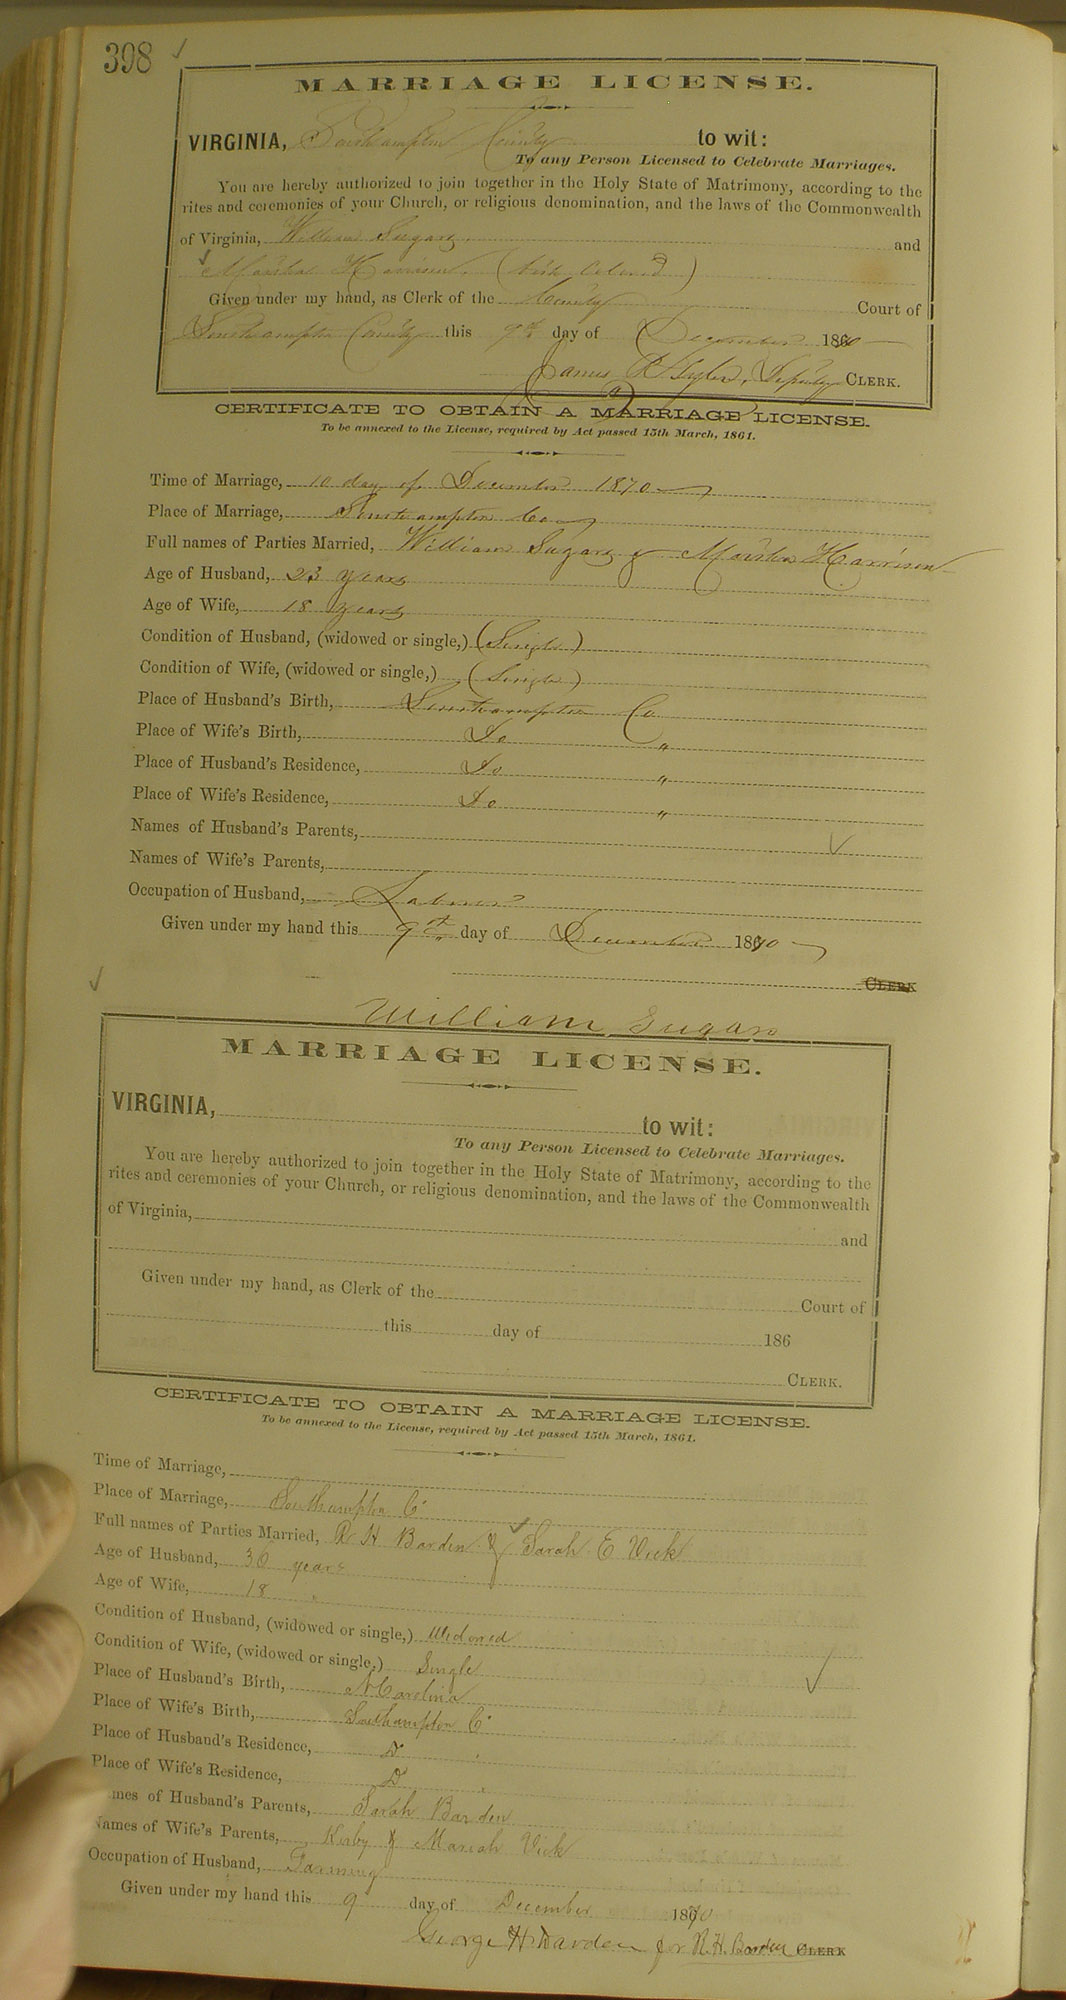 398
MARRIAGE LICENSE.
VIRGINIA, Southampton County to wit:
To any Person Licensed to Celebrate Marriages.
You are hereby authorized to join together in the Holy State of Matrimony, according to the
rites and ceremonies of your Church, or religious denomination, and the laws of the Commonwealth
of Virginia, William Sugars and
Harrison, (both Colored)
Given under my hand, as Clerk of the County Court of
Southampton County this 9th day of December 1870
James Deputy CLERK.
CERTIFICATE TO OBTAIN A MARRIAGE LICENSE.
To be annexed to the License, required by Act passed 15th March, 1861.
Time of Marriage, 10 day of December 1870
Place of Marriage, Southampton Co
Full names of Parties Married, William Sugars & Harrison
Age of Husband, 23 years
Age of Wife, 18 years
Condition of Husband, (widowed or single,) (Single)
Condition of Wife, (widowed or single,) (Single)
Place of Husband's Birth, Southampton Co
Place of Wife's Birth, Do "
Place of Husband's Residence, Do "
Place of Wife's Residence, Do "
Names of Husband's Parents,
Names of Wife's Parents,
Occupation of Husband, Laborer
Given under my hand this 9th day of December 1870
CLERK
William Sugars
MARRIAGE LICENSE.
VIRGINIA, to wit:
To any Person Licensed to Celebrate Marriages.
You are hereby authorized to join together in the Holy State of Matrimony, according to the
rites and ceremonies of your Church, or religious denomination, and the laws of the Commonwealth
of Virginia, and
Given under my hand, as Clerk of the Court of
this day of 186
CLERK.
CERTIFICATE TO OBTAIN A MARRIAGE LICENSE.
To be annexed to the License, required by Act passed 15th March, 1861.
Time of Marriage,
Place of Marriage, Southampton Co
Full names of Parties Married, R H Barden & Sarah E Vick
Age of Husband, 36 years
Age of Wife, 18 "
Condition of Husband, (widowed or single,) Widowed
Condition of Wife, (widowed or single,) Single
Place of Husband's Birth, N Carolina
Place of Wife's Birth, Southampton Co
Place of Husband's Residence, Do "
Place of Wife's Residence, Do "
mes of Husband's Parents, Sarah Barden
Names of Wife's Parents, Kirby & Mariah Vick
Occupation of Husband, Farming
Given under my hand this 9 day of December 1870
George H Darden for R. H. Barden CLERK